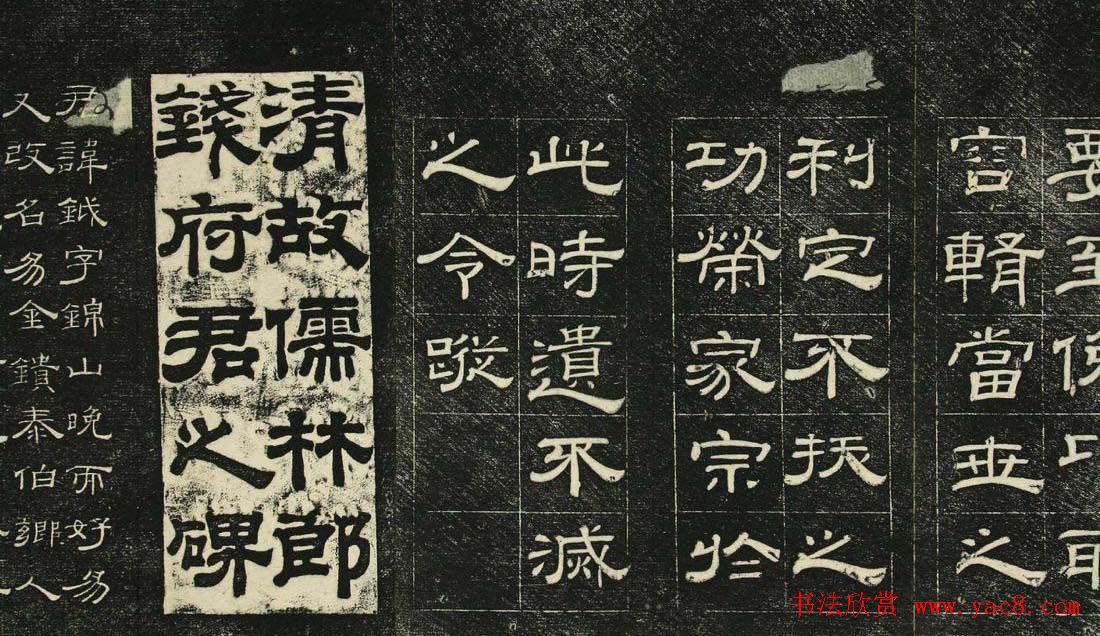 要至
當世之
利定不扶之
功榮家宗於
此時遺不滅
之令蹤
清故儒林郎
錢府君之碑
君諱鉞字錦山晚而好易
又改名易金鐀泰伯鄉人
书法欣赏 www.yac8.com